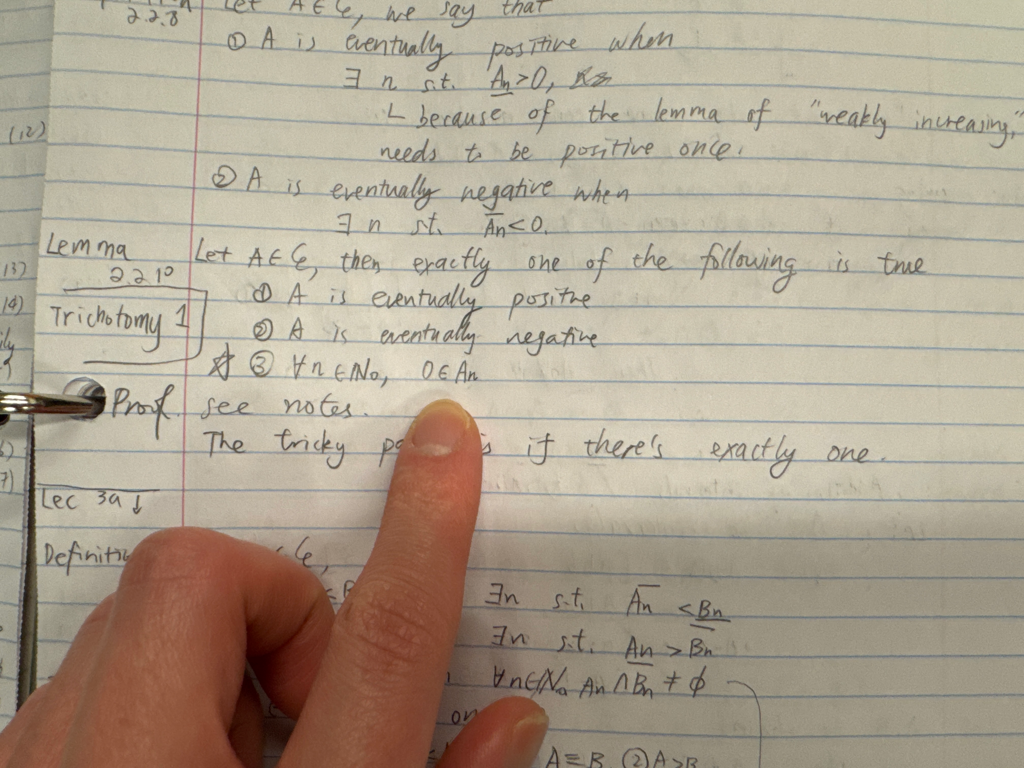 2.2.8 Let A ∈ 𝒞, we say that
① A is eventually positive when
∃ n s.t. A̲n > 0,
└ because of the lemma of "weakly increasing,"
(12)
needs to be positive once.
② A is eventually negative when
∃ n s.t. A̅n < 0.
Lemma Let A ∈ 𝒞, then exactly one of the following is true
13)
2.2.10
① A is eventually positive
14)
Trichotomy 1
② A is eventually negative
☆ ③ ∀n ∈ ℕ₀, 0 ∈ An
Proof. see notes.
The tricky is if there's exactly one.
7)
Lec 3a ↓
𝒞,
∃n s.t. A̅n < B̲n
∃n s.t. A̲n > B̅n
∀n ∈ ℕ₀ An ∩ Bn ≠ ∅
A ≡ B ② A > B